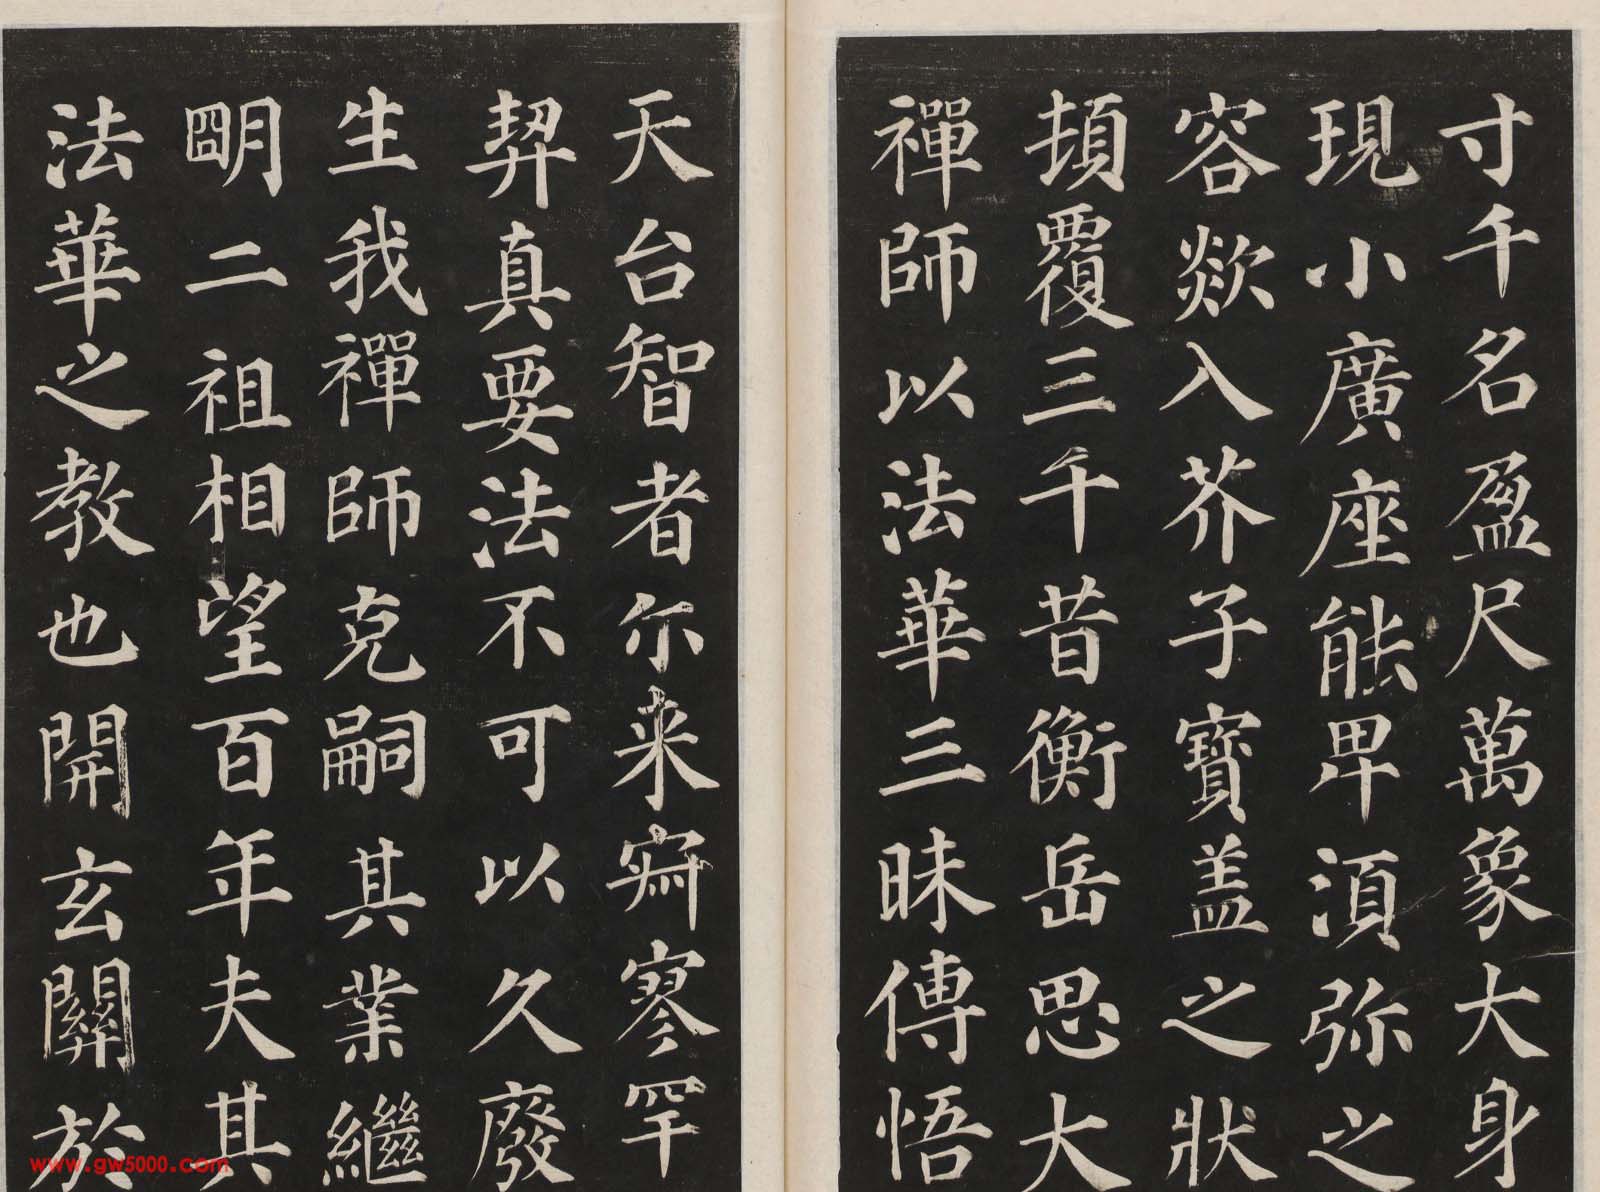 寸千名盈尺萬象大身
現小廣座能卑須弥之
容欻入芥子寶盖之狀
頓覆三千昔衡岳思大
禪師以法華三昧傳悟
天台智者尔来寂寥罕
契真要法不可以久廢
生我禪師克嗣其業繼
明二祖相望百年夫其
法華之教也開玄關於
www.gw5000.com